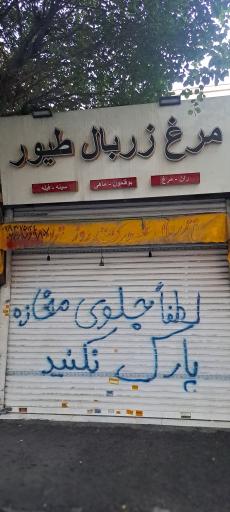 مرغ زربال طیور
ران - مرغ
بوقلمون - ماهی
سینه - فیله
لطفاً جلوی مغازه
پارک نکنید